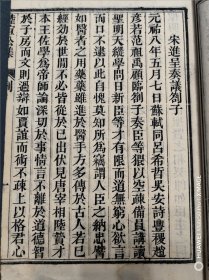 宋進呈奏議劄子
元祐八年五月七日蘇軾同呂希哲吳安詩豐稷趙
彥若范祖禹顧臨劄子奏臣等猥以空疎備員講讀
聖明天縱學問日新臣等才有限而道無窮心欲言
而口不逮以此自愧莫知所為竊謂人臣之納忠譬
如醫者之用藥藥雖進於醫手方多傳於古人若已
經効於世間不必皆從於己出伏見唐宰相陸贄才
本王佐學為帝師論深切於事情言不離於道德智
如子房而文則過辯如賈誼而術不疎上以格君心